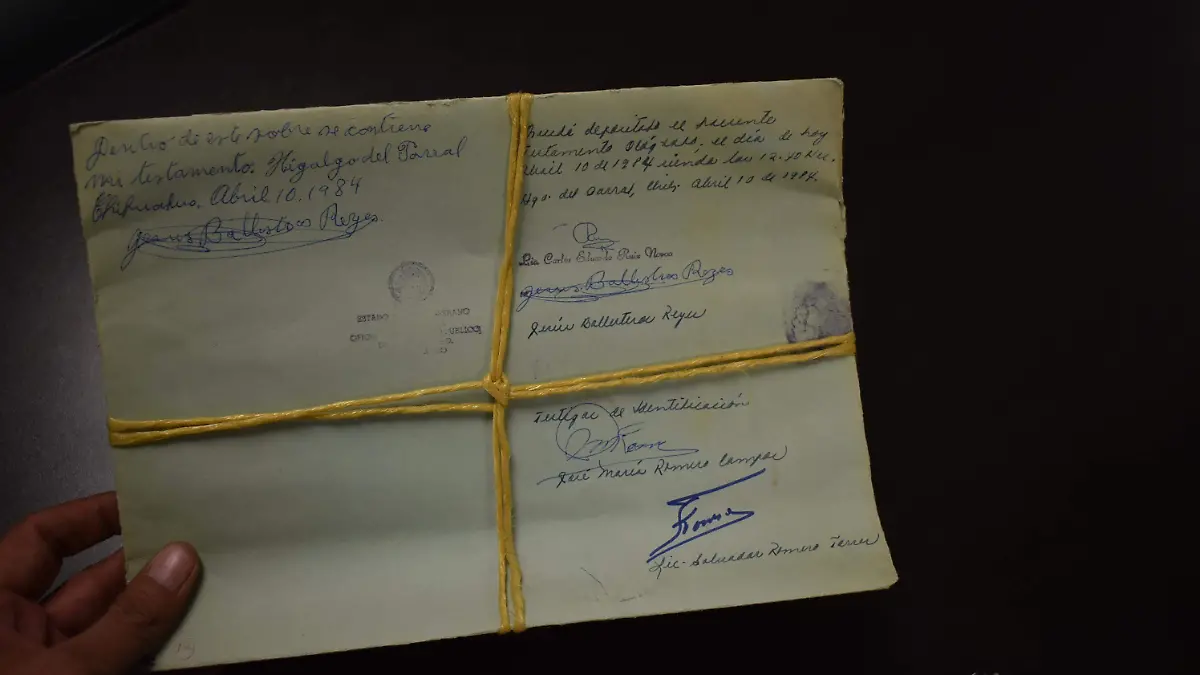 Dentro de este sobre se contiene
mi testamento. Hidalgo del Parral
Chihuahua. Abril 10, 1984
Jesus Ballesteros Reyes.
ESTADO
Quedó depositado el presente
testamento Ológrafo, el día de hoy
Abril 10 de 1984 siendo las 12.40 Hrs.
Hgo. del Parral, Chih. Abril 10 de 1984.
Lic. Carlos Eduardo Ruiz
Jesus Ballesteros Reyes
Jesús Ballesteros Reyes
Testigos de Identificación
José María Romero Campos
Lic. Salvador Romero Torres